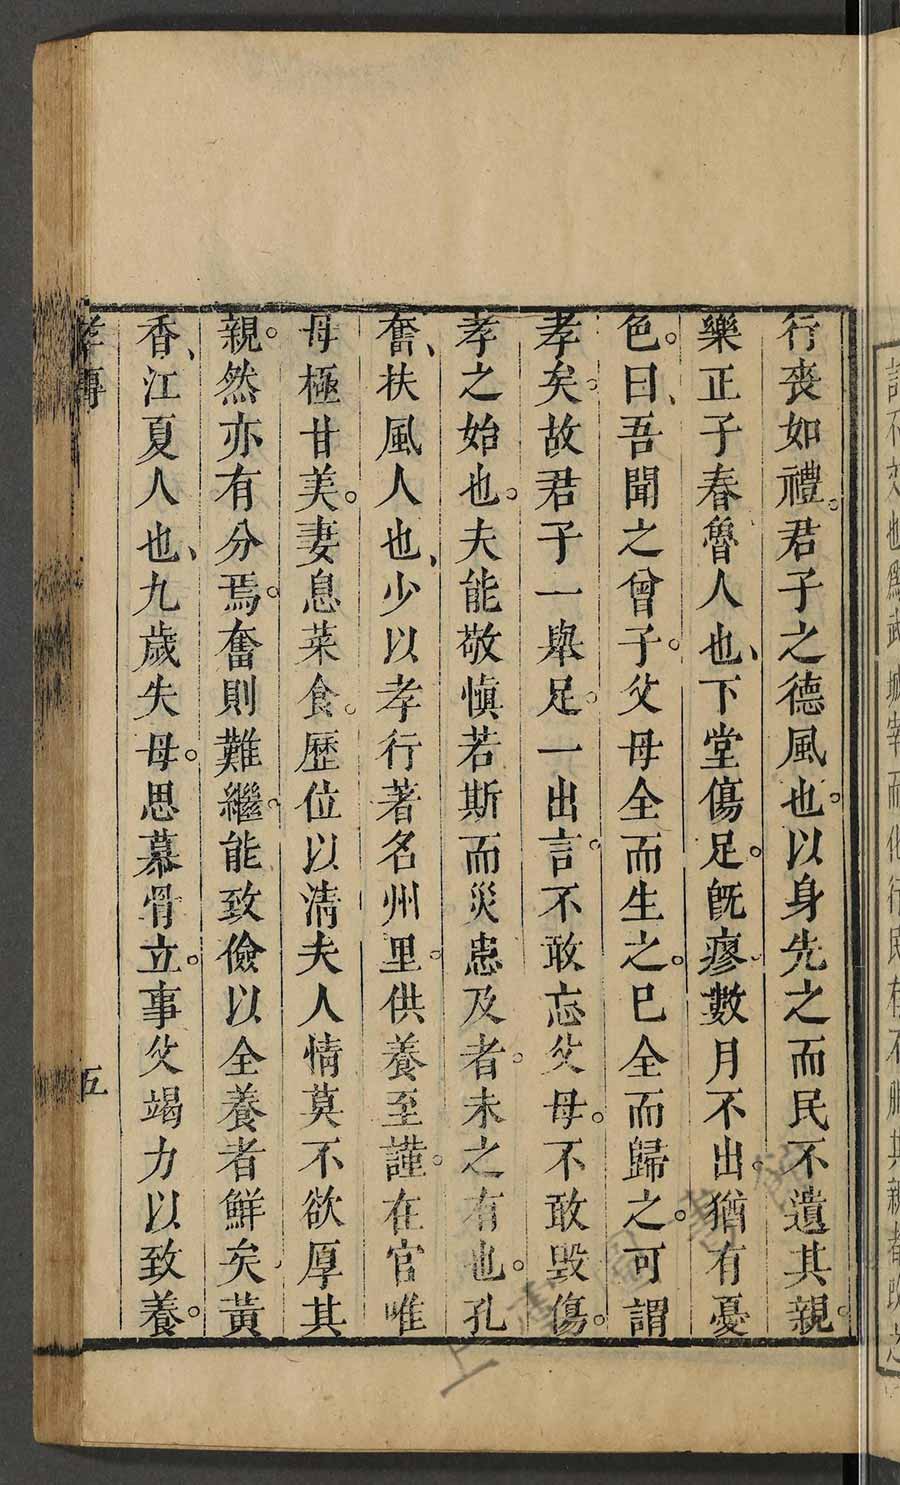 行喪如禮。君子之德風也。以身先之而民不遺其親。
樂正子春魯人也、下堂傷足。旣瘳數月不出。猶有憂
色。曰、吾聞之曾子。父母全而生之。已全而歸之。可謂
孝矣。故君子一舉足。一出言。不敢忘父母。不敢毀傷。
孝之始也。夫能敬愼若斯而災患及者。未之有也。孔
奮、扶風人也、少以孝行著名州里。供養至謹。在官唯
母極甘美。妻息菜食。歷位以清夫人情莫不欲厚其
親。然亦有分焉。奮則難繼。能致儉以全養者鮮矣黃
香、江夏人也、九歲失母。思慕骨立。事父竭力以致養。
孝傳
五